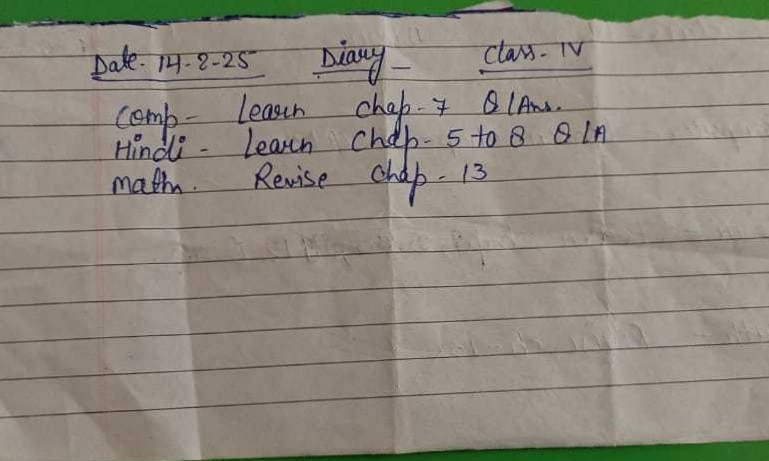 Date- 14-2-25 Diary- Class- IV
Comp- Learn Chap-7 Q/Ans.
Hindi- Learn Chap-5 to 8 Q/A
Math. Revise Chap-13